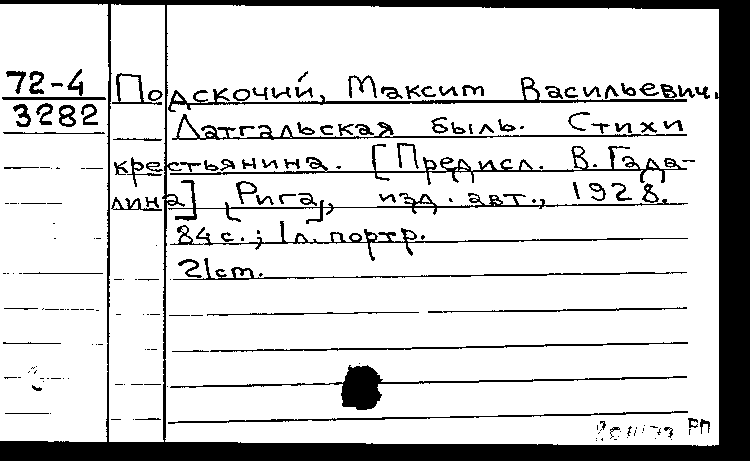 72-4 Подскочий, Максим Васильевич.
3282
Латгальская быль. Стихи
крестьянина. [Предисл. В. Гада-
лина] [Рига], изд. авт., 1928.
84 с.; 1 л. портр.
21 cm.
РП